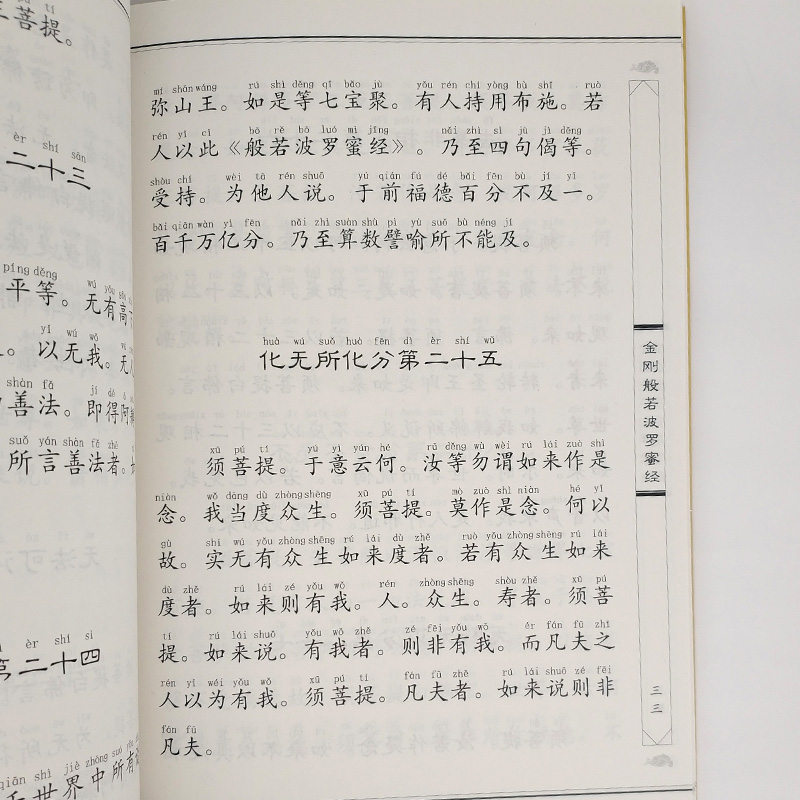 pú tí
菩提。
èr shí sān
二十三
píng děng wú yǒu gāo
平等。无有高
yǐ wú wǒ wú
。以无我。无
shàn fǎ jí dé
善法。即得阿
suǒ yán shàn fǎ zhě
所言善法者。
èr shí sì
第二十四
qiān shì jiè zhōng suǒ
千世界中所有
mí shān wáng rú shì děng qī bǎo jù yǒu rén chí yòng bù shī ruò
弥山王。如是等七宝聚。有人持用布施。若
rén yǐ cǐ bō rě bō luó mì jīng nǎi zhì sì jù jì děng
人以此《般若波罗蜜经》。乃至四句偈等。
shòu chí wèi tā rén shuō yú qián fú dé bǎi fēn bù jí yī
受持。为他人说。于前福德百分不及一。
bǎi qiān wàn yì fēn nǎi zhì suàn shù pì yù suǒ bù néng jí
百千万亿分。乃至算数譬喻所不能及。
huà wú suǒ huà fēn dì èr shí wǔ
化无所化分第二十五
xū pú tí yú yì yún hé rǔ děng wù wèi rú lái zuò shì
须菩提。于意云何。汝等勿谓如来作是
niàn wǒ dāng dù zhòng shēng xū pú tí mò zuò shì niàn hé yǐ
念。我当度众生。须菩提。莫作是念。何以
gù shí wú yǒu zhòng shēng rú lái dù zhě ruò yǒu zhòng shēng rú lái
故。实无有众生如来度者。若有众生如来
dù zhě rú lái zé yǒu wǒ rén zhòng shēng shòu zhě xū pú
度者。如来则有我。人。众生。寿者。须菩
tí rú lái shuō yǒu wǒ zhě zé fēi yǒu wǒ ér fán fū zhī
提。如来说。有我者。则非有我。而凡夫之
rén yǐ wéi yǒu wǒ xū pú tí fán fū zhě rú lái shuō zé fēi
人以为有我。须菩提。凡夫者。如来说则非
fán fū
凡夫。
金刚般若波罗蜜经
三三